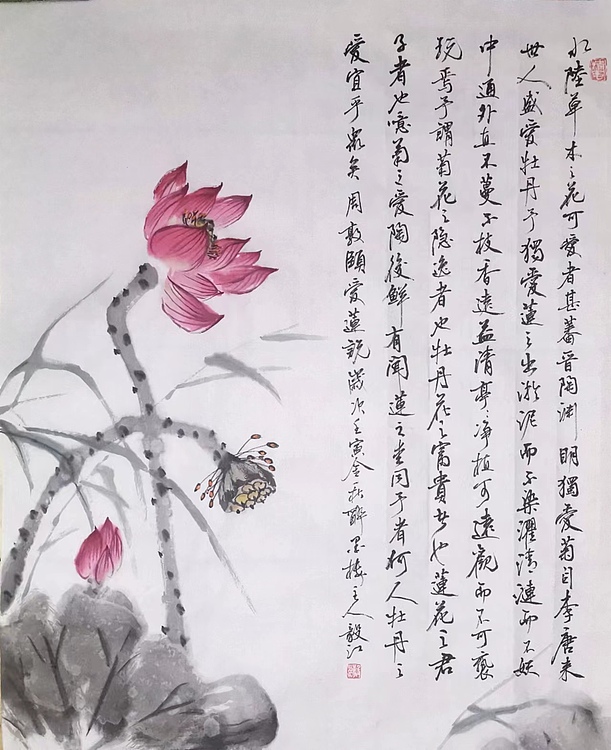 水陸草木之花可愛者甚蕃晋陶渊明獨愛菊自李唐来
世人盛愛牡丹予獨愛蓮之出淤泥而不染濯清漣而不妖
中通外直不蔓不枝香遠益清亭亭净植可遠觀而不可褻
玩焉予謂菊花之隐逸者也牡丹花之富貴者也蓮花之君
子者也噫菊之愛陶後鮮有聞蓮之愛同予者何人牡丹之
愛宜乎衆矣周敦頤愛蓮説歲次壬寅金秋醉墨樓主人毅江